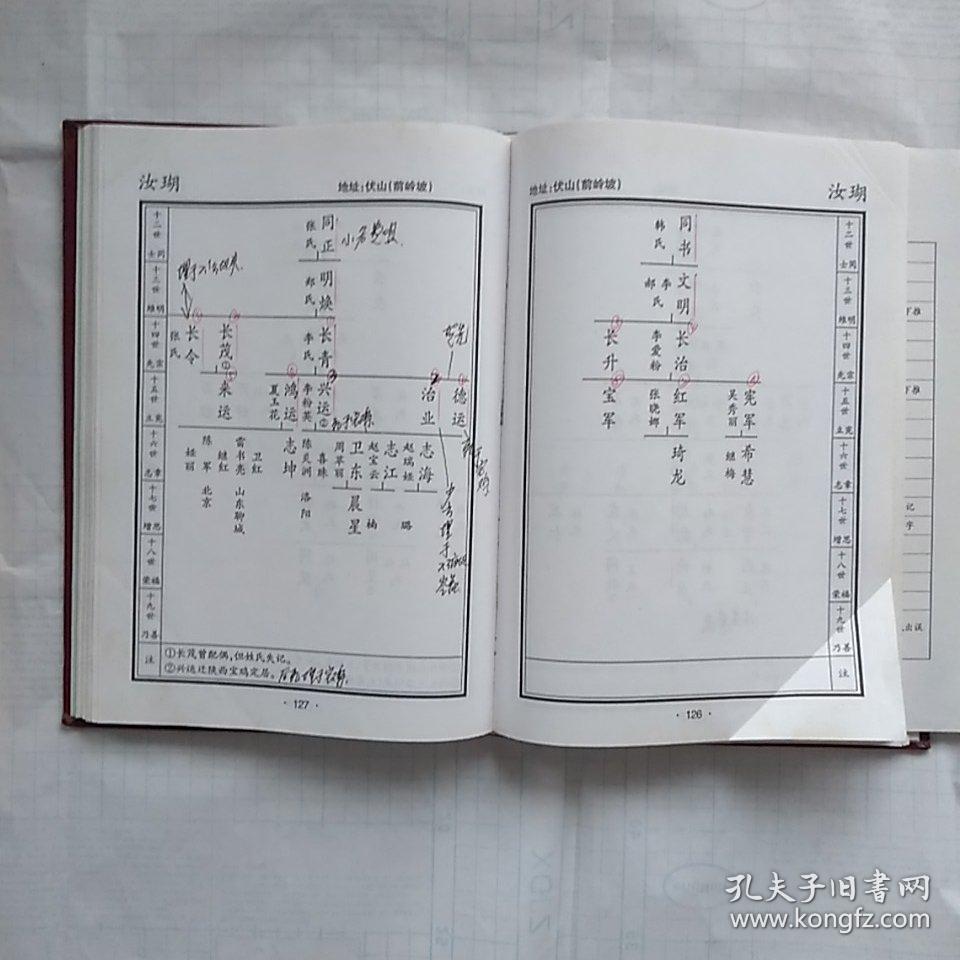 汝瑚
地址：伏山(前岭坡)
十二世 士同
十三世 雄明
十四世 先宗
十五世 立宪
十六世 志章
十七世 增思
十八世 荣福
十九世 乃善
注
同正
张氏
明焕
郝氏
长青
李氏
长茂①
长令
张氏
德运
治业
兴运②
李粉英
鸿运
夏玉花
来运
志海
赵瑞娃
志江
赵宝云
卫东
周苹丽
喜珠
洛阳
陈灵润
志坤
卫红
雷书亮 山东聊城
继红
陈军 北京
娃丽
璐
楠
晨星
①长茂曾配偶，但姓氏失记。
②兴运迁陕西宝鸡定居。
·127·
地址：伏山(前岭坡)
汝瑚
十二世 士同
十三世 雄明
十四世 先宗
十五世 立宪
十六世 志章
十七世 增思
十八世 荣福
十九世 乃善
注
同书
韩氏
文明
李氏
郝氏
长治
李爱粉
长升
宪军
吴秀丽
红军
张晓娜
宝军
希慧
继梅
琦龙
·126·
下推
下推
记
字
出误
孔夫子旧书网
www.kongfz.com